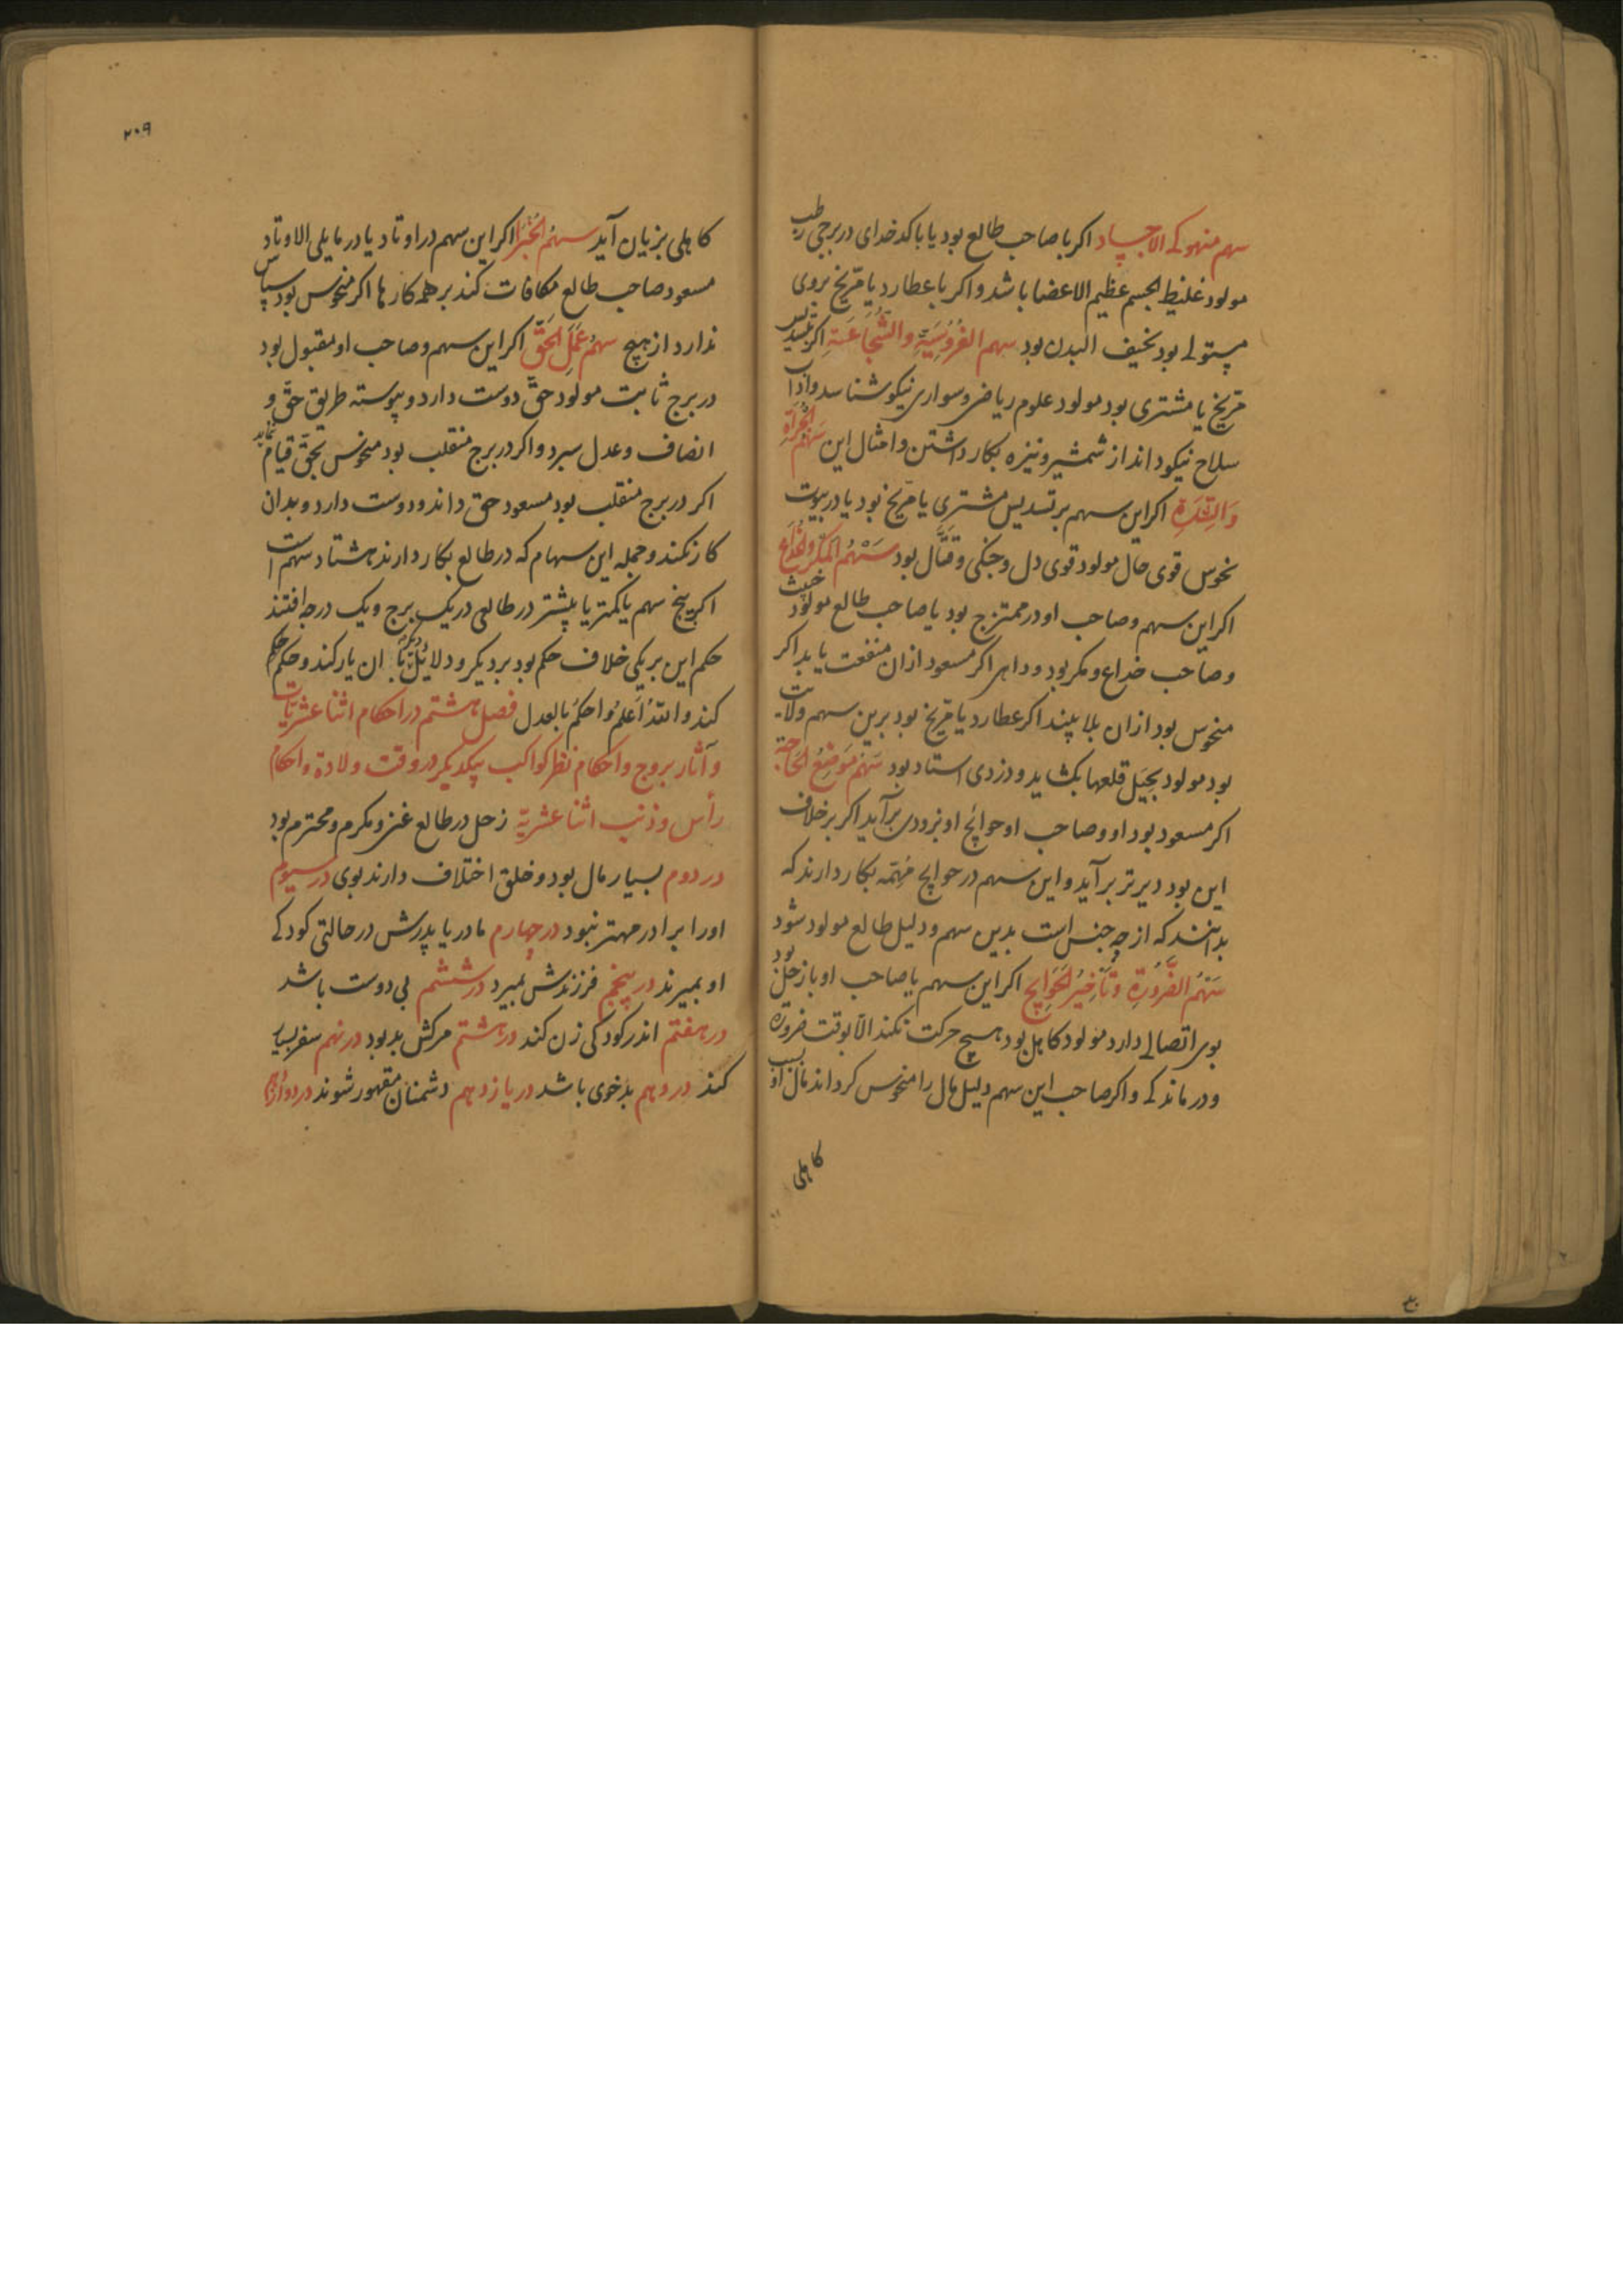 سهم منهوکے الاجساد اکر با صاحب طالع بود یا با کدخدای در برجی رطب
مولود غلیظ الجسم عظیم الاعضا باشد و اکر با عطارد یا مریخ بروی
مستولے بود نحیف البدن بود سهم الفروسیّة والشّجاعة اکر بتسدیس
مریخ یا مشتری بود مولود علوم ریاضی و سواری نیکو شناسد و ادا
سلاح نیکو داند از شمشیر و نیزه بکار داشتن و امثال این سهم الجرأة
اکر این سهم بر تسدیس مشتری یا مریخ بود یا در بیوت
نحوس قوی حال مولود قوی دل و جنکی و قتّال بود سَهْمُ المکر والخداع
اکر این سهم و صاحب او در ممتزج بود یا صاحب طالع مولود خبیث
و صاحب خداع و مکر بود و داهی اکر مسعود ازان منفعت یابد اکر
منحوس بود ازان بلا بیند اکر عطارد یا مریخ بود برین سهم ولات
بود مولود بحیَل قلعها بکشاید و دزدی استاد بود سَهم مَوضِعُ الحَاجة
اکر مسعود بود او و صاحب او حوائج او بزودی برآید اکر بر خلاف
این بود دیرتر برآید و این سهم در حوایج مُهِمّه بکار دارند که
بدانند که از چه جنس است بدین سهم و دلیل طالع مولود شود
سَهْمُ الضَّرُورَةِ وَتَأخِیرُ الحَوایج اکر این سهم یا صاحب او با زحل بود
بوی اتصالے دارد مولود کاهل بود هیچ حرکت نکند الّا بوقت ضرورة
و درماندکے و اکر صاحب این سهم دلیل مال را منحوس کرداند مال او بسبب
کاهلی
۲۰۹
کاهلی بزیان آید سهمُ الخبر اکر این سهم در اوتاد یا در ما یلی الاوتاد
مسعود صاحب طالع مکافات کند بر همه کارها اکر منحوس بود سپاس
ندارد از هیچ سهمُ عَمَلِ الحَقّ اکر این سهم و صاحب او مقبول بود
در برج ثابت مولود حقّ دوست دارد و پیوسته طریق حقّ و
انصاف و عدل سپرد و اکر در برج منقلب بود منحوس بحقّ قیام نماید
اکر در برج منقلب بود مسعود حق داند و دوست دارد و بدان
کار نکند و جمله این سهام که در طالع بکار دارند هشتاد سهم است
اکر پنج سهم یا کمتر یا بیشتر در طالعی در یک برج و یک درجه افتند
حکم این بر یکی خلاف حکم بود بر دیکر و دلایل دیکر با آن یار کند و حکم
کند و اللّه اَعلَمُ وَاحکمُ بالعدل فصل هشتم در احکام اثنا عشریّات
و آثار بروج و احکام نظر کواکب بیکدیکر در وقت ولادة و احکام
رأس و ذنب اثنا عشریّه زحل در طالع عزیز و مکرم و محترم بود
در دوم بسیار مال بود و خلق اختلاف دارند بوی در سیوم
اورا برادر مهتر نبود در چهارم مادر یا پدرش در حالتی کودکے
او بمیرند در پنجم فرزندش بمیرد در ششم بی دوست باشد
در هفتم اندر کودکی زن کند در هشتم مرکش بد بود در نهم سفر بسیار
کند در دهم بدخوی باشد در یازدهم دشمنان مقهور شوند در دوازدهم